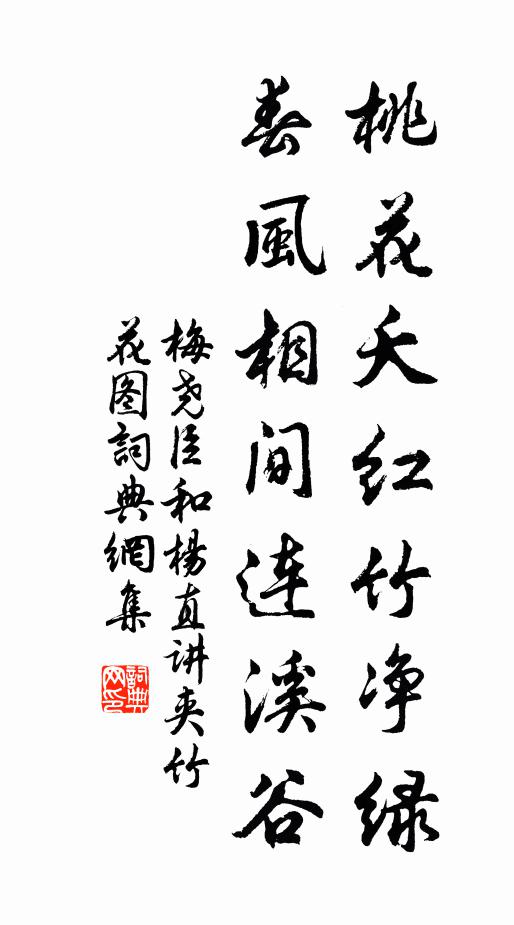 桃花夭红竹净绿
春風相间連溪谷
梅尧臣和楊直讲夹竹
花图詞典網集
詞典网印